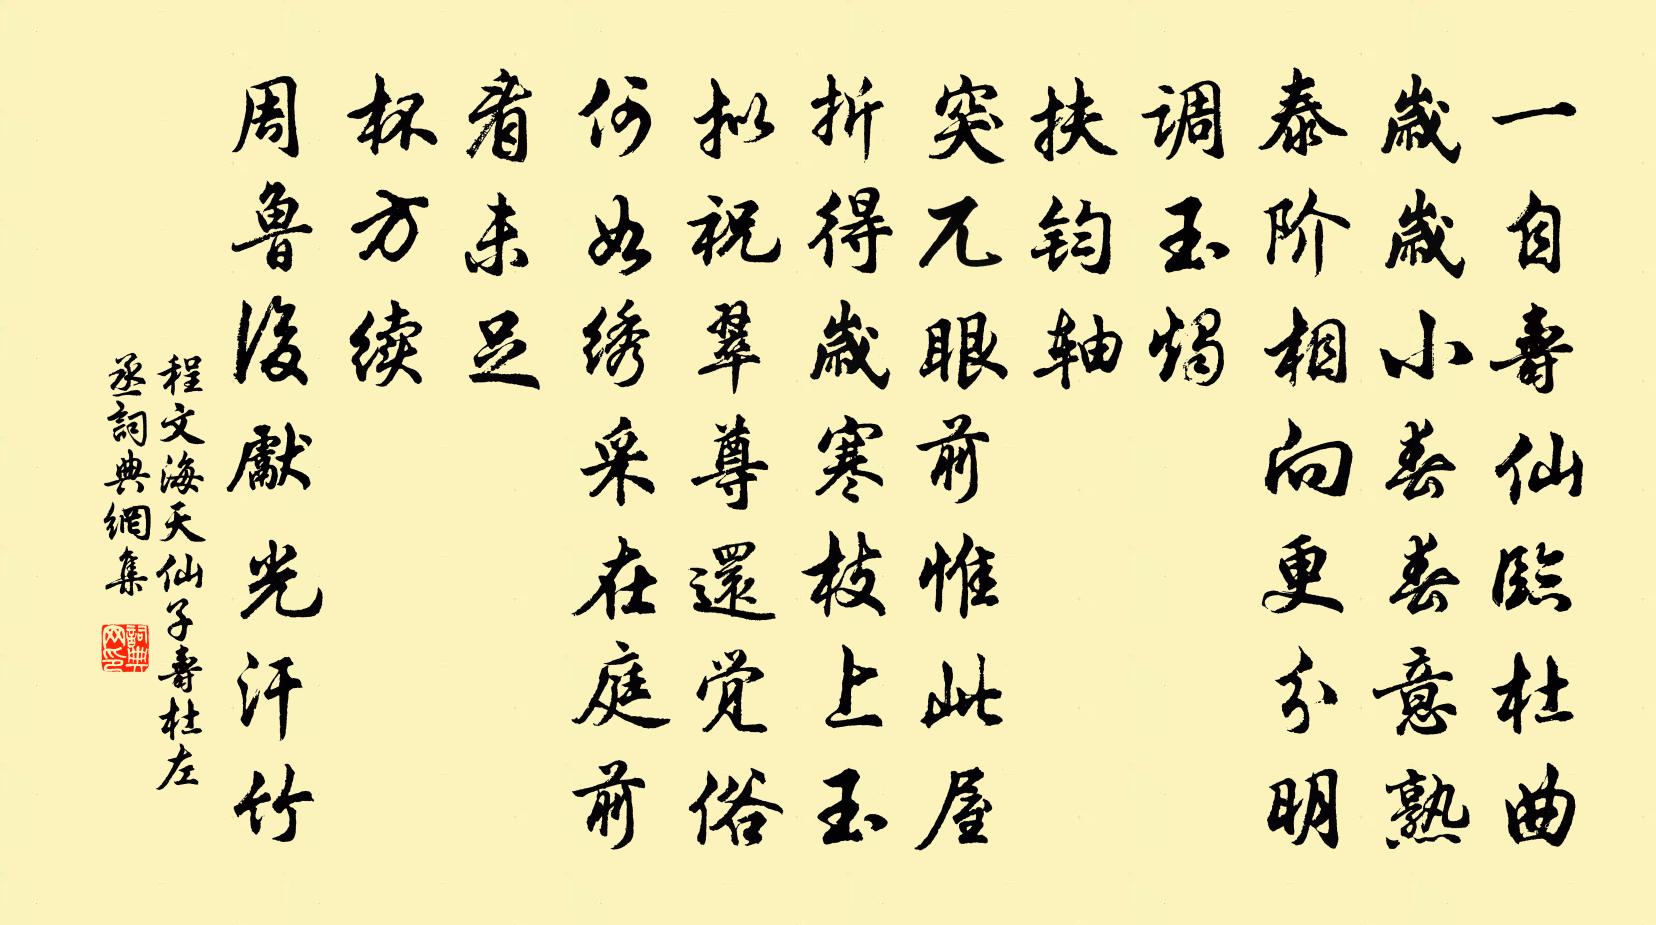 一自壽仙臨杜曲
歲歲小春春意熟
泰阶相向更分明
调玉燭
扶钧轴
突兀眼前惟此屋
折得歲寒枝上玉
拟祝翠尊還觉俗
何如绣采在庭前
看未足
杯方续
周魯後獻光汗竹
程文海天仙子壽杜左
丞詞典網集
詞典
网印